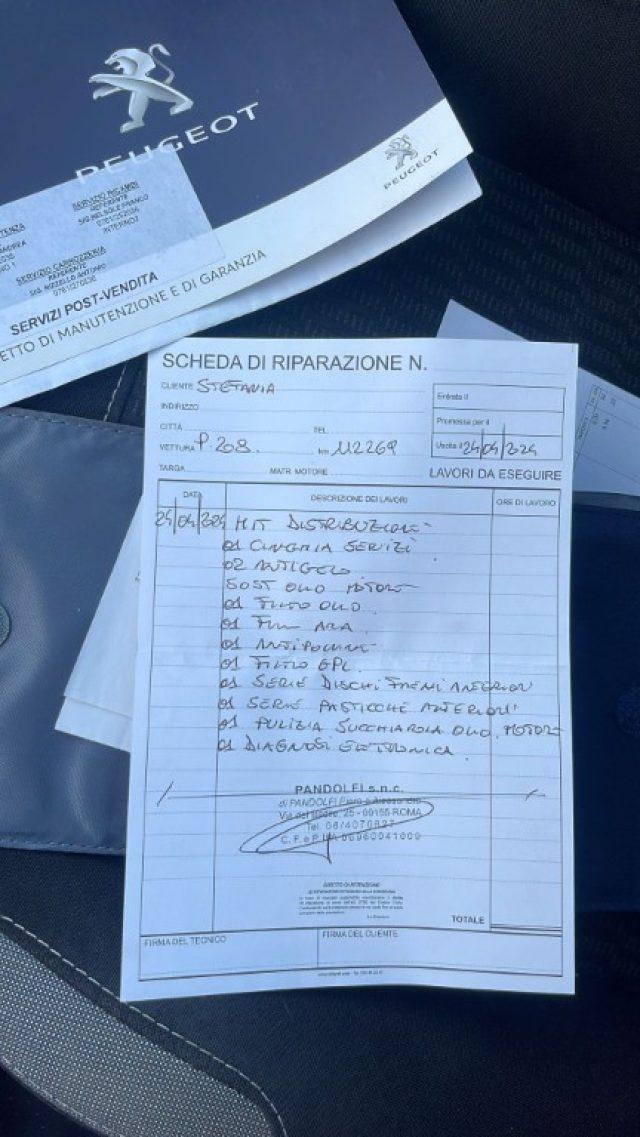 PEUGEOT
PEUGEOT
SERVIZIO RICAMBI
REFERENTE
INTERNO2
SERVIZIO CARROZZERIA
REFERENTE
SERVIZI POST-VENDITA
ETTO DI MANUTENZIONE E DI GARANZIA
SCHEDA DI RIPARAZIONE N.
CLIENTE STEFANIA
INDIRIZZO
Entrata il
CITTÀ TEL.
Promessa per il
VETTURA P. 208. km 112269
Uscita il 24/04/2024
TARGA MATR. MOTORE
LAVORI DA ESEGUIRE
DATA DESCRIZIONE DEI LAVORI ORE DI LAVORO
24/04/2024 KIT DISTRIBUZIONE
01 CINGHIA SERVIZI
02 ANTIGELO
SOST OLIO MOTORE
01 FILTRO OLIO
01 FILTRO ARIA
01 ANTIPOLLINE
01 FILTRO GPL
01 SERIE DISCHI FRENI ANTERIORI
01 SERIE PASTICCHE ANTERIORI
01 PULIZIA SUCCHIAROLA OLIO MOTORE
01 DIAGNOSI ELETTRONICA
PANDOLFI s.n.c.
di PANDOLFI Piero e Alessandro
25 - 00155 ROMA
TOTALE
FIRMA DEL TECNICO FIRMA DEL CLIENTE